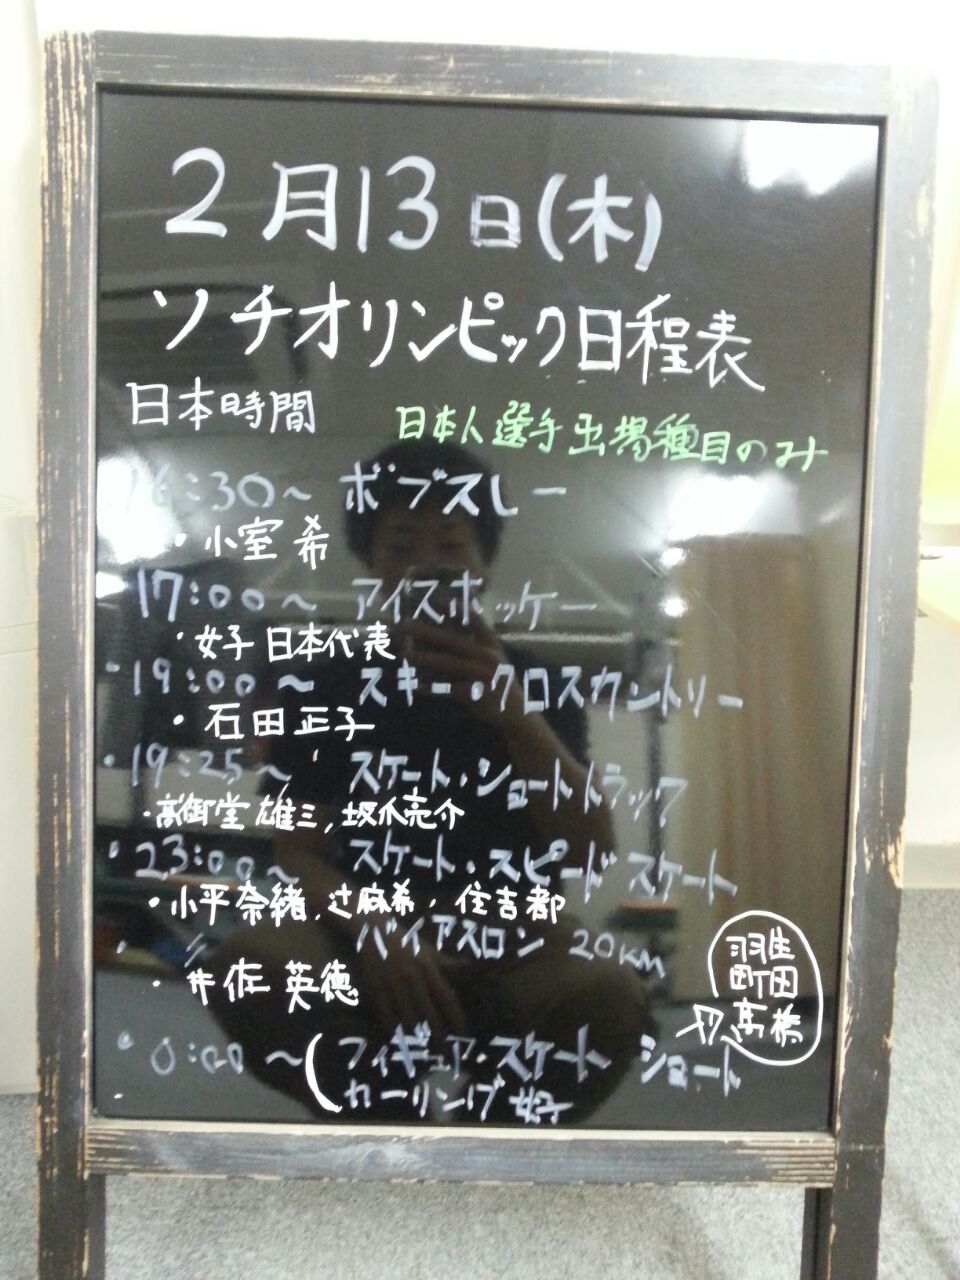 2月13日(木)
ソチオリンピック日程表
日本時間
日本人選手出場種目のみ
16:30〜 ボブスレー
・小室 希
17:00〜 アイスホッケー
・女子 日本代表
・19:00〜 スキー・クロスカントリー
・石田正子
・19:25〜 スケート・ショートトラック
・高御堂 雄三, 坂爪亮介
・23:00〜 スケート・スピードスケート
・小平奈緒, 辻麻希・住吉都
・〃 バイアスロン 20KM
・井佐 英徳
・0:00〜(フィギュア・スケート ショート
カーリング 女子
羽生
町田
高橋